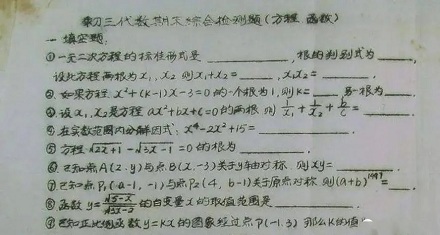 初三代数期末综合检测题(方程 函数)
一 填空题:
①一元二次方程的标准形式是______,根的判别式为____
设此方程两根为x₁,x₂ 则x₁+x₂=____,x₁x₂=____.
②如果方程 x²+(k-1)x-3=0的一个根为1,则k=__ 另一根为__
③设x₁,x₂是方程ax²+bx+c=0的两根 则 1/x₁+1/x₂+b/c=____
④在实数范围内分解因式:x⁴-2x²+15=________
⑤方程√2x+1-√3x-1=0的根为______
⑥已知点A(2,y)与点B(x,-3)关于y轴对称 则xy=____
⑦已知点P₁(a-1,-1)与点P₂(4,b-1)关于原点对称 则(a+b)¹⁹⁹¹=__
⑧函数y=√5-x/√3x-2的自变量x的取值范围是____
⑨已知正比例函数y=kx的图象经过点P(-1,3) 那么k的值